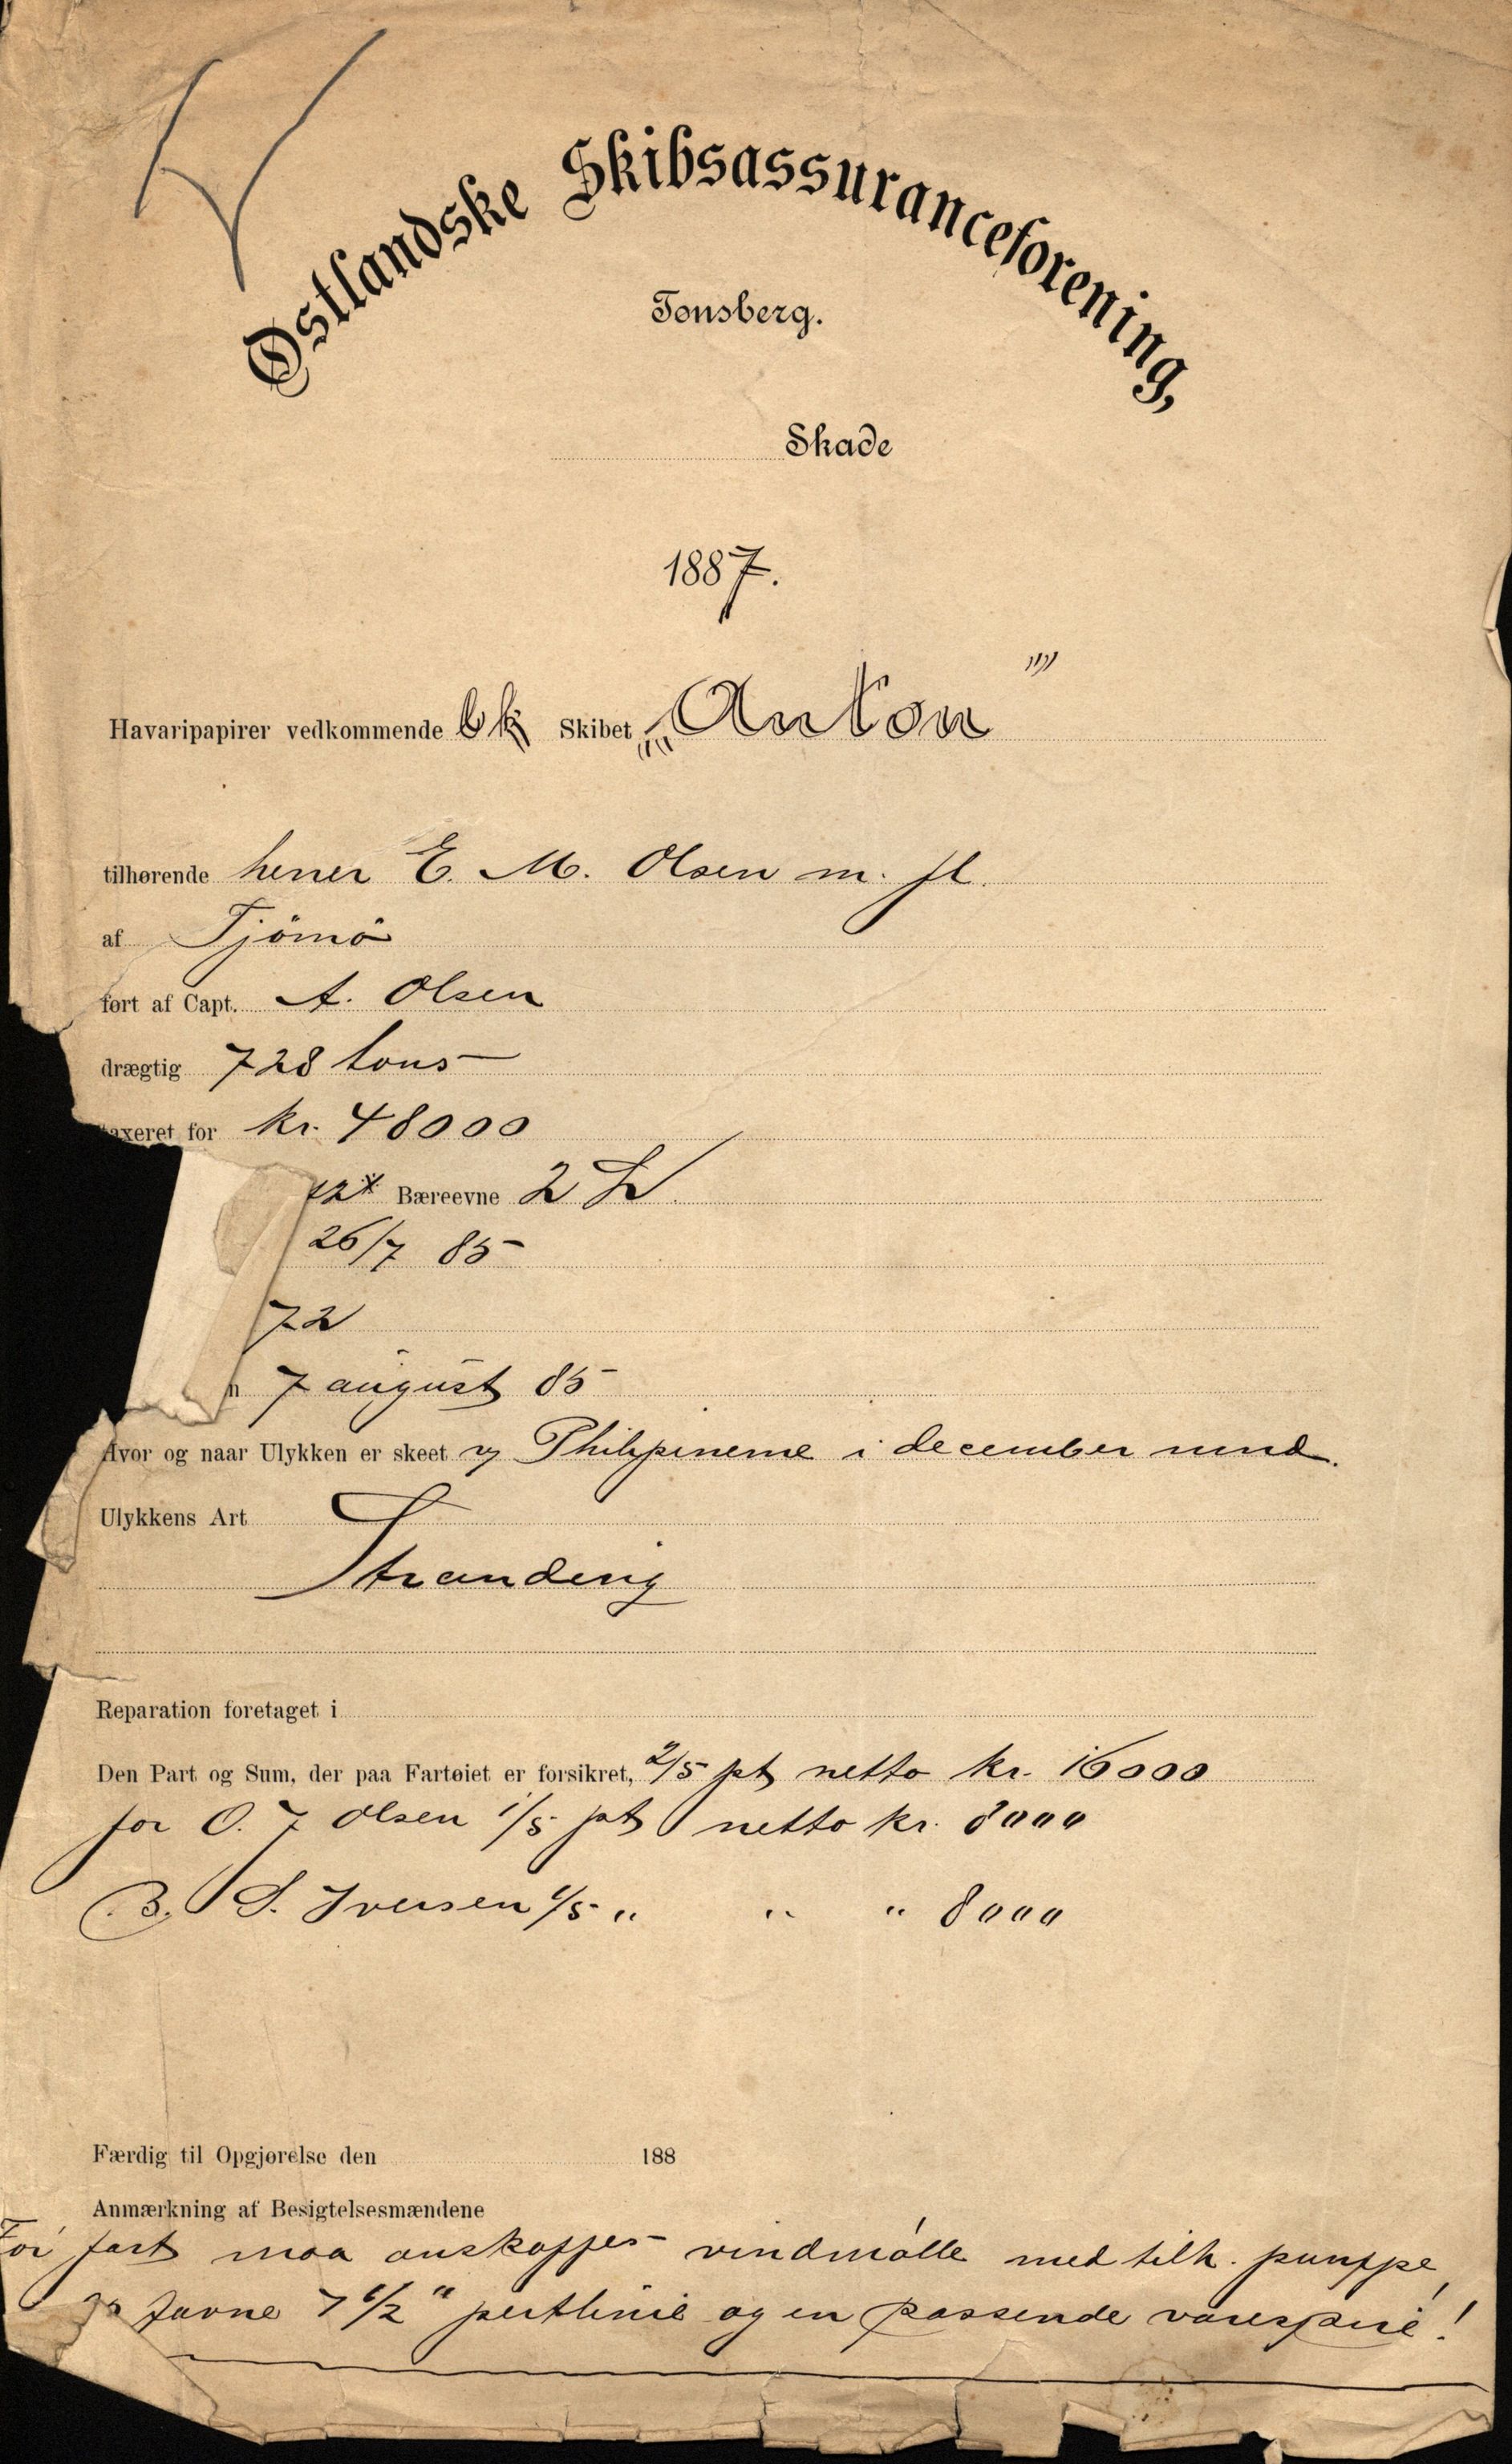 Østlandske Skibsassuranceforening,
Tønsberg.
Skade
1887.
Havaripapirer vedkommende bk Skibet „Anton"
tilhørende herrer E. M. Olsen m. fl.
af Tjömö
ført af Capt. A. Olsen
drægtig 728 tons
taxeret for kr. 48000
Bæreevne 2
26/7 85
72
n 7 august 85
Hvor og naar Ulykken er skeet v/ Philipinerne i december mnd.
Ulykkens Art
Stranding
Reparation foretaget i
Den Part og Sum, der paa Fartøiet er forsikret, 2/5 pt netto kr. 16000
for O. J Olsen 1/5 pt netto kr. 8000
B. S. Iversen 1/5 " " " 8000
Færdig til Opgjørelse den 188
Anmærkning af Besigtelsesmændene
For fart maa anskaffes vindmölle med tilh. pumppe,
favne 7 1/2" pertlinie og en passende varespire!